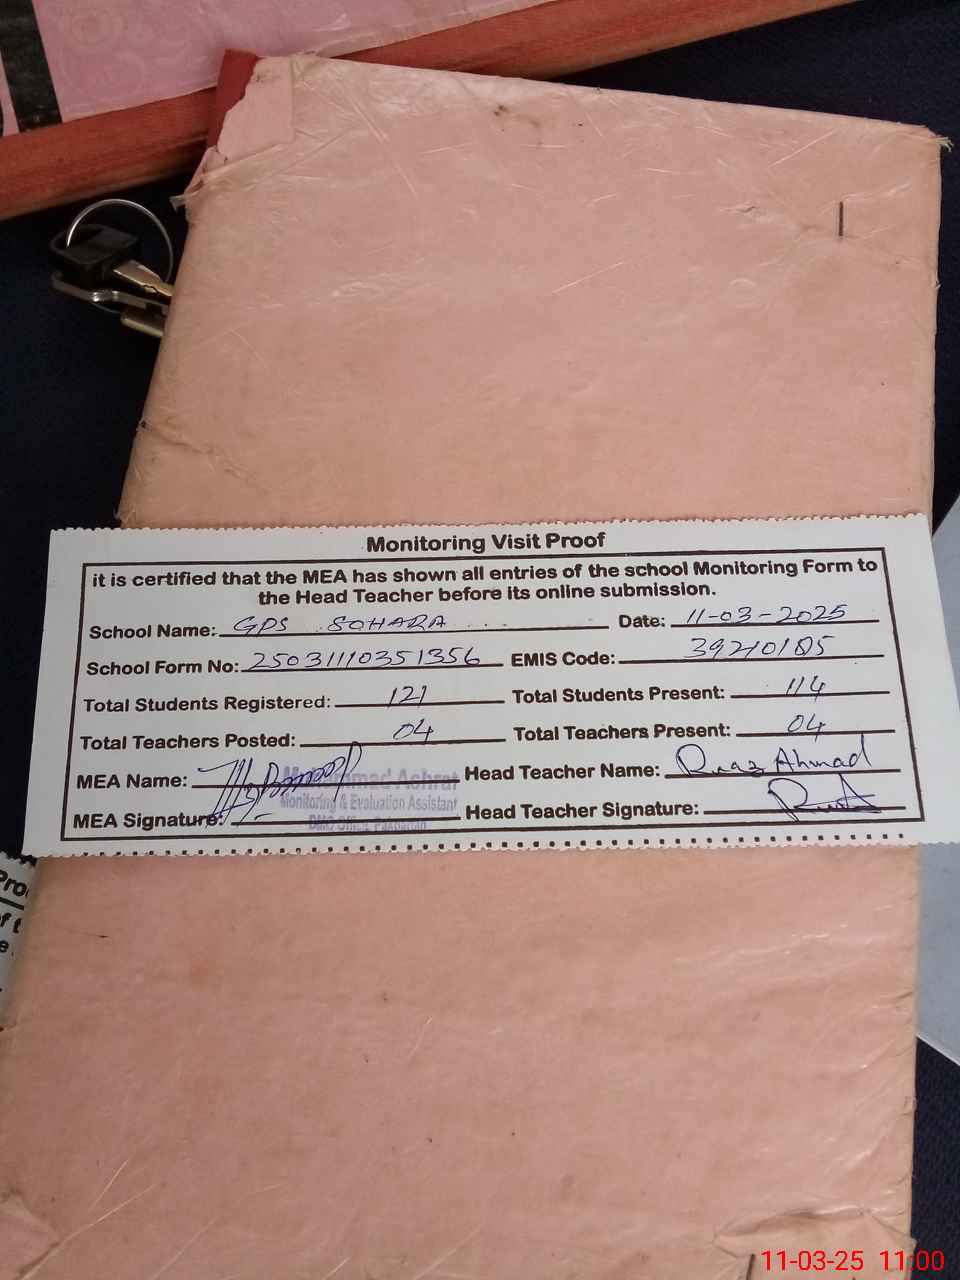 Monitoring Visit Proof
it is certified that the MEA has shown all entries of the school Monitoring Form to
the Head Teacher before its online submission.
School Name: GPS SOHARA Date: 11-03-2025
School Form No: 25031110351356 EMIS Code: 39210185
Total Students Registered: 121 Total Students Present: 114
Total Teachers Posted: 04 Total Teachers Present: 04
MEA Name: Muhammad Ashraf Head Teacher Name: Ahmad
Monitoring & Evaluation Assistant
MEA Signature: Head Teacher Signature:
DMO Office, Pakpattan
Pro
of t
e
11-03-25 11:00